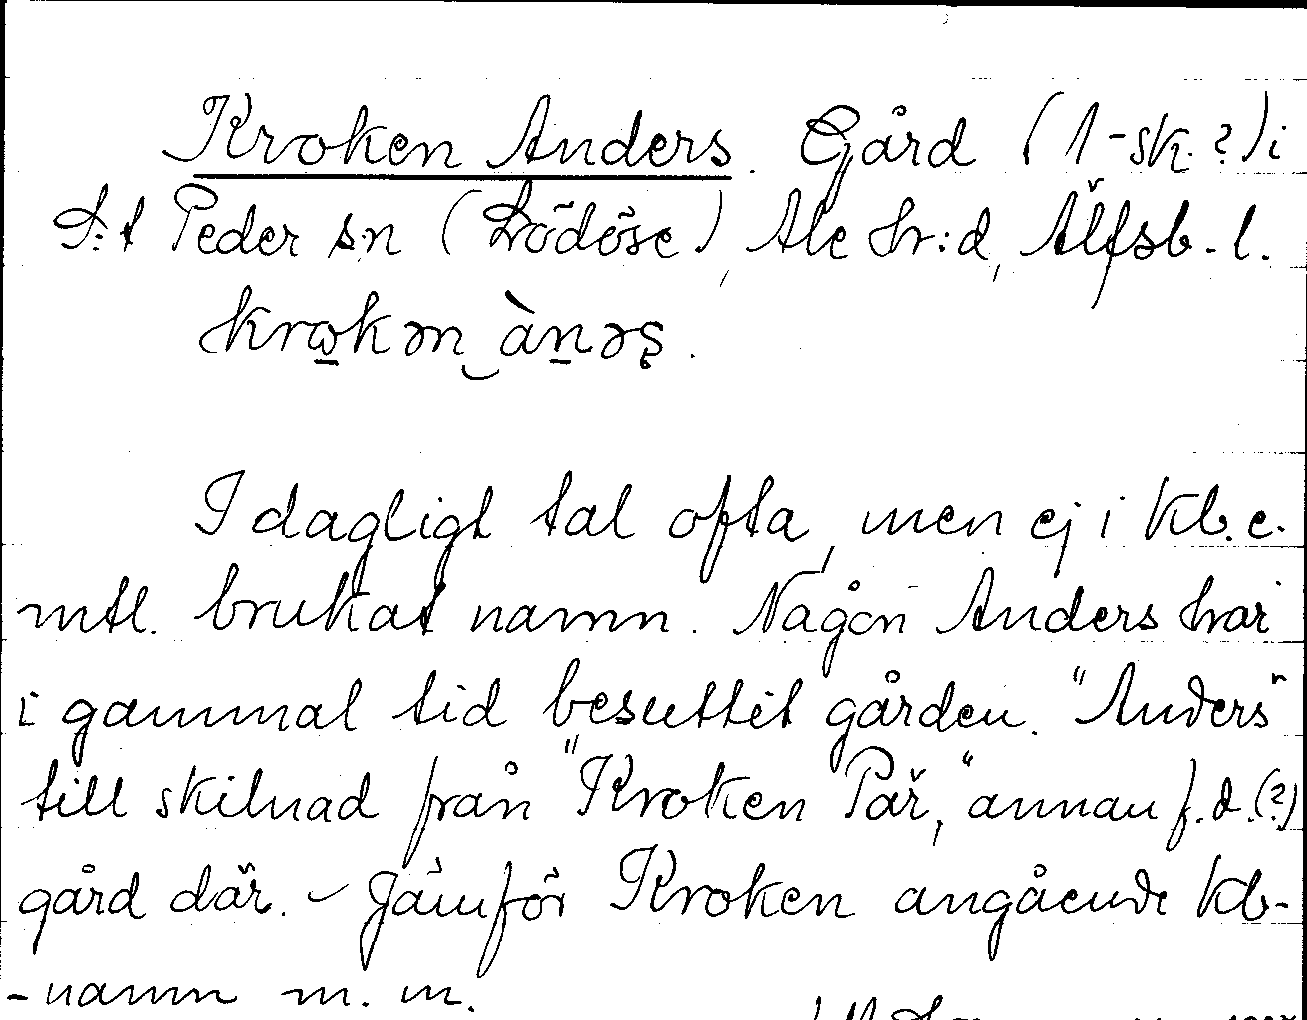 Kroken Anders. Gård (1-sk.?) i
S:t Peder sn (Lödöse), Ale hr:d, Älfsb-l.
krω̲kən‿àn̲əʂ.
I dagligt tal ofta, men ej i kb. e.
mtl. brukat namn. Någon Anders har
i gammal tid besuttit gården. "Anders"
till skilnad från "Kroken Pär," annan f.d.(?)
gård där. – Jämför Kroken angående kb-
-namn m. m.